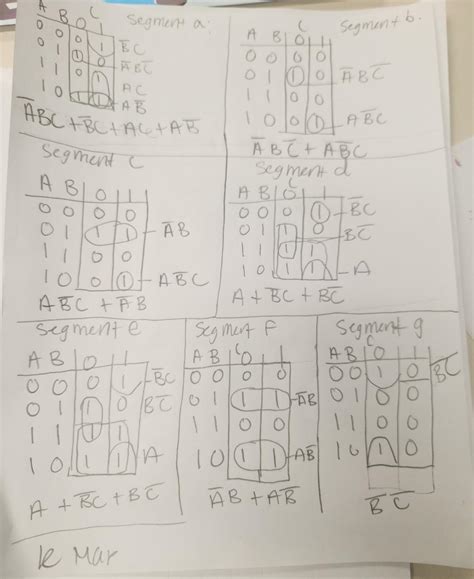 Segment a.
A B C 0 1
0 0 0 1
0 1 1 0
1 1 0 1
1 0 1 1
B̅C
A̅BC̅
AC
AB̅
A̅BC̅ + B̅C + AC + AB̅
Segment b.
C
A B 0 1
0 0 0 0
0 1 1 0
1 1 0 0
1 0 0 1
A̅BC̅
AB̅C
A̅BC̅ + AB̅C
Segment c
A B 0 1
0 0 0 0
0 1 1 1
1 1 0 0
1 0 0 1
A̅B
AB̅C
AB̅C + A̅B
Segment d
C
A B 0 1
0 0 0 1
0 1 1 0
1 1 1 1
1 0 1 1
B̅C
BC̅
A
A + B̅C + BC̅
Segment e
A B 0 1
0 0 0 1
0 1 1 0
1 1 1 1
1 0 1 1
B̅C
BC̅
A
A + B̅C + BC̅
Segment f
A B C 0 1
0 0 0 0
0 1 1 1
1 1 0 0
1 0 1 1
A̅B
AB̅
A̅B + AB̅
Segment g
C
A B 0 1
0 0 1 0
0 1 0 0
1 1 0 0
1 0 1 0
B̅C̅
B̅ C̅
K Mar